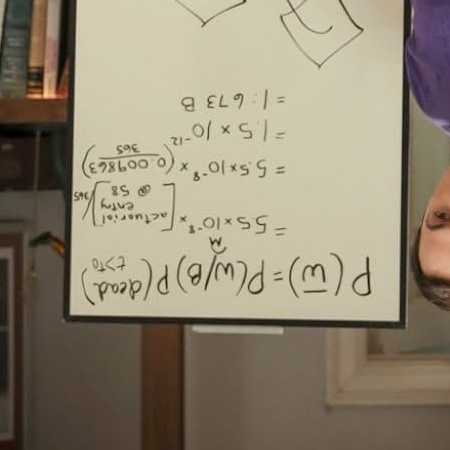 P(w̅) = P(w/B) P(dead)
M
t>t₀
= 5.5 × 10⁻⁸ × [actuarial entry @ 58]/365
= 5.5 × 10⁻⁸ × (0.009863/365)
= 1.5 × 10⁻¹²
= 1:673 B